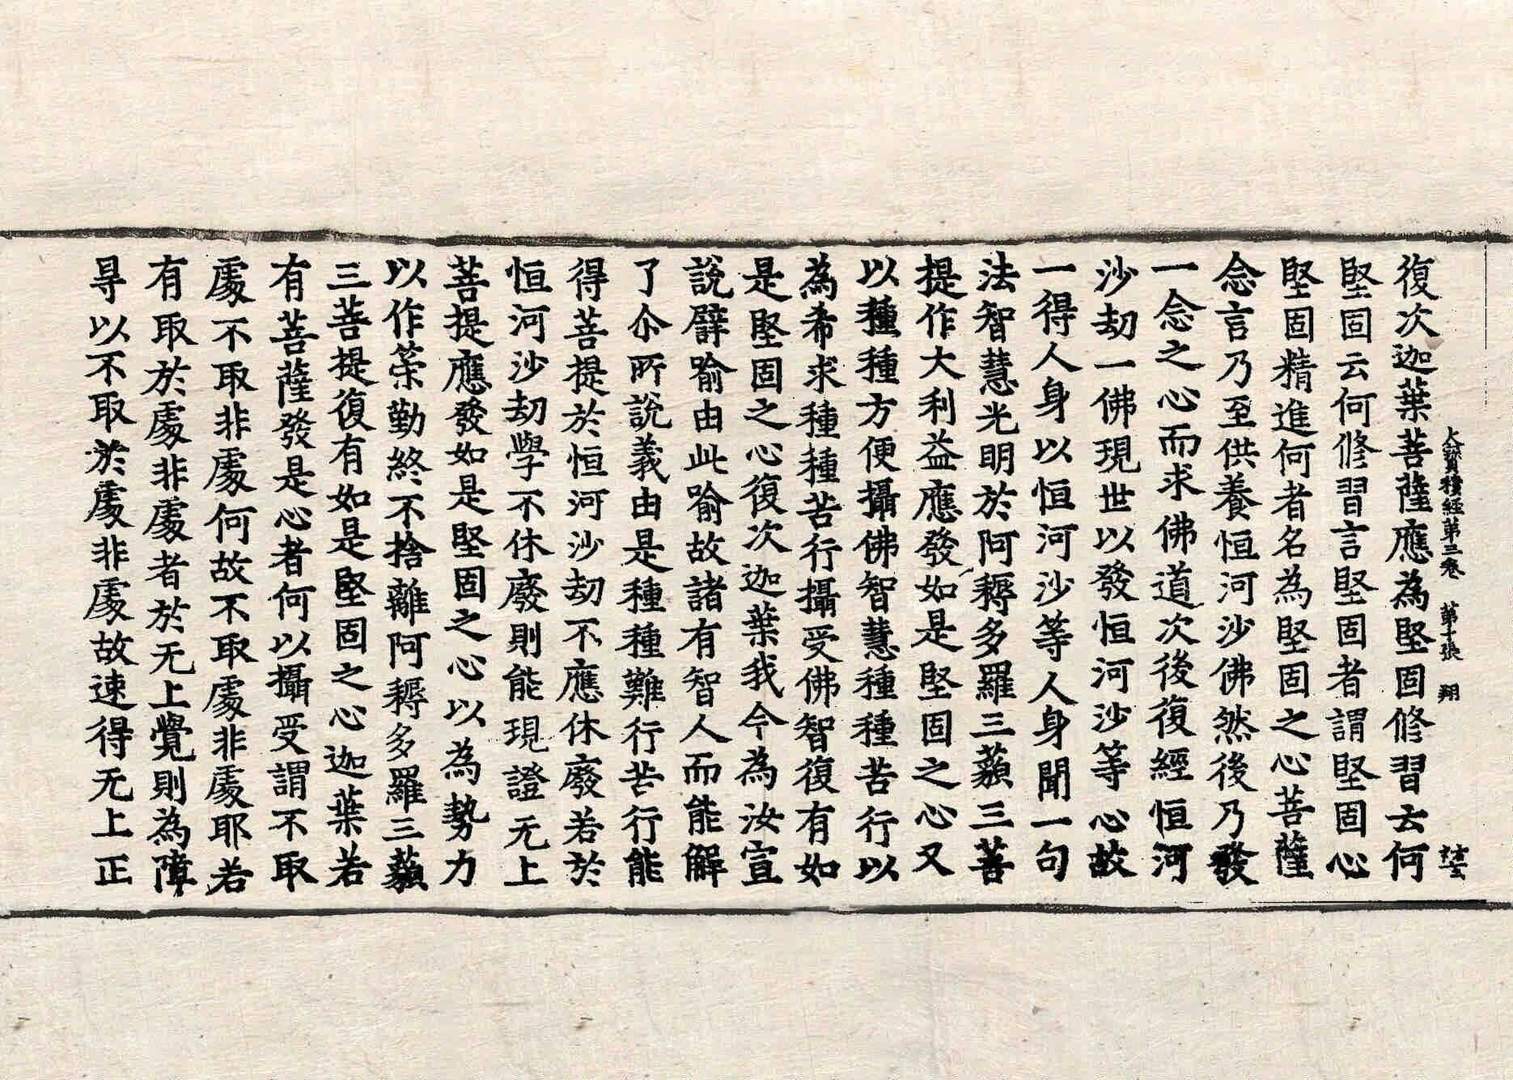 大寶積經第三卷　第十張　翔
復次迦葉菩薩應為堅固修習云何
堅固云何修習言堅固者謂堅固心
堅固精進何者名為堅固之心菩薩
念言乃至供養恒河沙佛然後乃發
一念之心而求佛道次後復經恒河
沙劫一佛現世以發恒河沙等心故
一得人身以恒河沙等人身聞一句
法智慧光明於阿耨多羅三藐三菩
提作大利益應發如是堅固之心又
以種種方便攝佛智慧種種苦行以
為希求種種苦行攝受佛智復有如
是堅固之心復次迦葉我今為汝宣
說譬喻由此喻故諸有智人而能解
了尒所說義由是種種難行苦行能
得菩提於恒河沙劫不應休廢若於
恒河沙劫學不休廢則能現證无上
菩提應發如是堅固之心以為勢力
以作策勤終不捨離阿耨多羅三藐
三菩提復有如是堅固之心迦葉若
有菩薩發是心者何以攝受謂不取
處不取非處何故不取處非處耶若
有取於處非處者於无上覺則為障
㝵以不取於處非處故速得无上正